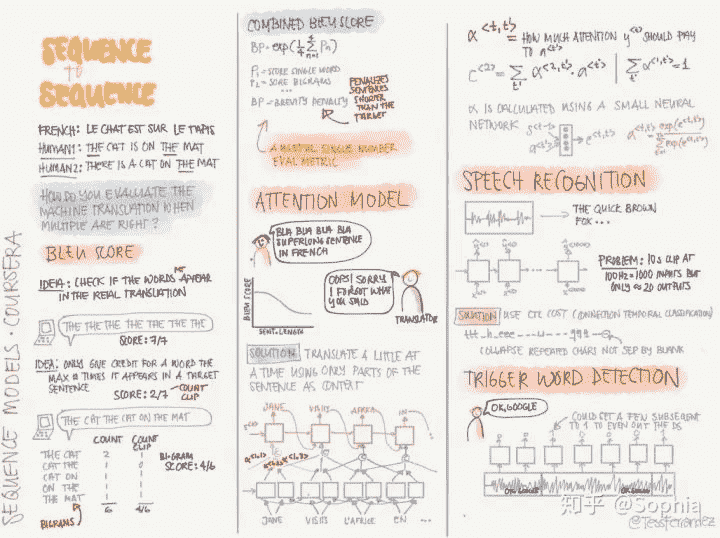 SEQUENCE
to
SEQUENCE
FRENCH: LE CHAT EST SUR LE TAPIS
HUMAN1: THE CAT IS ON THE MAT
HUMAN2: THERE IS A CAT ON THE MAT
HOW DO YOU EVALUATE THE
MACHINE TRANSLATION WHEN
MULTIPLE ARE RIGHT?
BLEU SCORE
IDEA: CHECK IF THE WORDS MT APPEAR
IN THE REAL TRANSLATION
THE THE THE THE THE THE THE
SCORE: 7/7
IDEA: ONLY GIVE CREDIT FOR A WORD THE
MAX # TIMES IT APPEARS IN A TARGET
SENTENCE
SCORE: 2/7
COUNT
CLIP
THE CAT THE CAT ON THE MAT
COUNT COUNT CLIP
THE CAT 2 1
CAT THE 1 0
CAT ON 1 1
ON THE 1 1
THE MAT 1 1
6 4/6
BIGRAM
SCORE: 4/6
BIGRAMS
SEQUENCE MODELS · COURSERA
COMBINED BLEU SCORE
P1 = SCORE SINGLE WORD
P2 = SCORE BIGRAMS
...
BP = BREVITY PENALTY
PENALIZES
SENTENCES
SHORTER
THAN THE
TARGET
A USEFUL SINGLE NUMBER
EVAL METRIC
ATTENTION MODEL
BLA BLA BLA BLA
SUPERLONG SENTENCE
IN FRENCH
BLEU SCORE
SENT. LENGTH
OOPS! SORRY
I FORGOT WHAT
YOU SAID
TRANSLATOR
SOLUTION TRANSLATE A LITTLE AT
A TIME USING ONLY PARTS OF THE
SENTENCE AS CONTEXT
JANE VISITS AFRICA IN
JANE VISITS L'AFRIQUE EN
α<t,t'> = HOW MUCH ATTENTION y<t> SHOULD PAY
TO a<t'>
α IS CALCULATED USING A SMALL NEURAL
NETWORK
SPEECH RECOGNITION
THE QUICK BROWN
FOX...
PROBLEM: 10s CLIP AT
100Hz = 1000 INPUTS BUT
ONLY ≈ 20 OUTPUTS
SOLUTION USE CTC COST (CONNECTION TEMPORAL CLASSIFICATION)
COLLAPSE REPEATED CHARS NOT SEP BY BLANK
TRIGGER WORD DETECTION
OK, GOOGLE
COULD SET A FEW SUBSEQUENT
TO 1 TO EVEN OUT THE DS
OK GOOGLE OK GOOGLE
知乎 @Sophia
@TessFerrandez